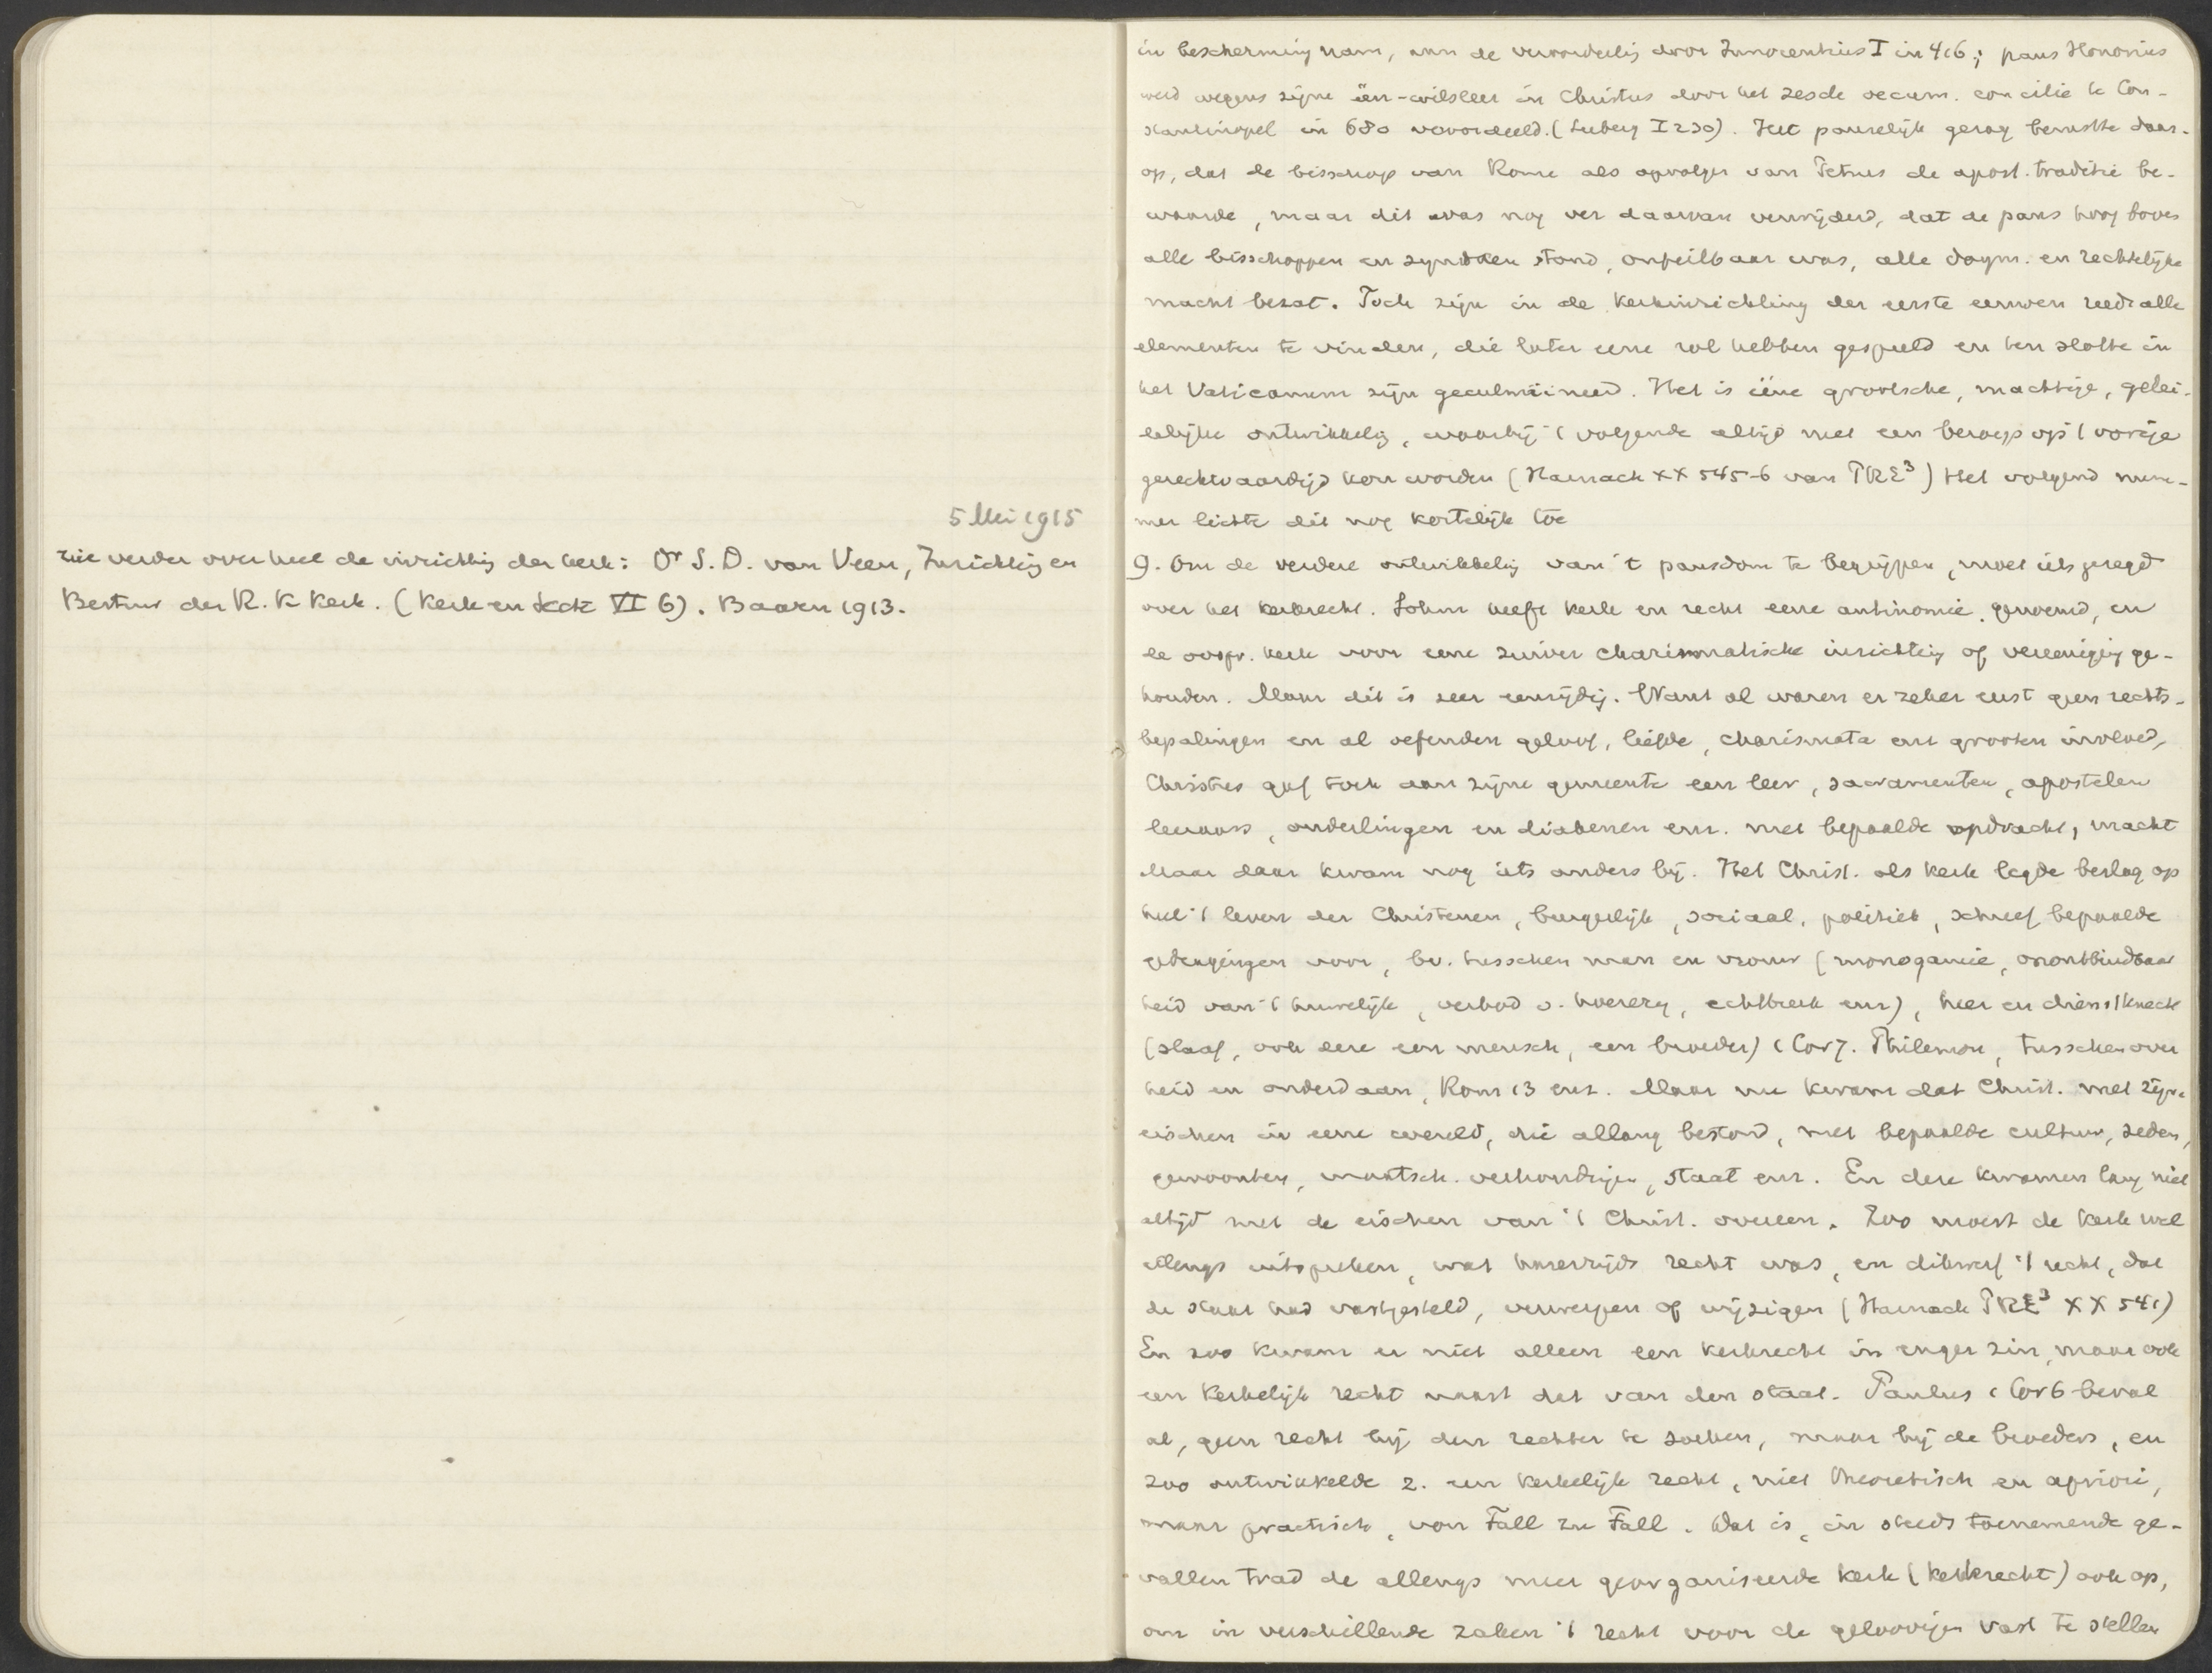 5 Mei 1915
zie verder over heel de inrichtig der kerk: Dr S. D. van Veen, Inrichtig en
Bestuur der R. K Kerk. (Kerk en Secte VI 6). Baarn 1913.
in bescherming nam, na de veroordeelig door Innocentius I in 416; paus Honorius
werd wegens zijne één-wilsleer in Christus door het zesde oecum. concilie te Con-
stantinopel in 680 veroordeeld. (Seeberg I 230). Het pauselijk gezag berustte daar-
op, dat de bisschop van Rome als opvolger van Petrus de apost. traditie be-
waarde, maar dit was nog ver daarvan verwijderd, dat de paus hoog boven
alle bisschoppen en synoden stond, onfeilbaar was, alle dogm. en rechtelijke
macht bezat. Toch zijn in de kerkinrichting der eerste eeuwen reeds alle
elementen te vinden, die later eene rol hebben gespeeld en ten slotte in
het Vaticanum zijn geculmineerd. Het is ééne grootsche, machtige, gelei-
delijke ontwikkelig, waarbij 't volgende altijd met een beroep op 't vorige
gerechtvaardigd kon worden (Harnack XX 545-6 van PRE³) Het volgend num-
mer lichte dit nog kortelijk toe
9. Om de verdere ontwikkelig van 't pausdom te begrijpen, moet iets gezegd
over het kerkrecht. Sohm heeft kerk en recht eene antinomie genoemd, en
de oorspr. kerk voor eene zuiver charismatische inrichtig of vereenigig ge-
houden. Maar dit is zeer eenzijdig. Want al waren er zeker eerst geen rechts-
bepalingen en al oefenden geloof, liefde, charismata enz grooten invloed,
Christus gaf toch aan zijne gemeente een leer, sacramenten, apostelen
leeraars, ouderlingen en diakenen enz. met bepaalde opdracht, macht
Maar daar kwam nog iets anders bij. Het Christ. als kerk legde beslag op
heel 't leven der Christenen, burgerlijk, sociaal, politiek, schreef bepaalde
gedragingen voor, bv. tusschen man en vrouw (monogamie, onontbindbaar
heid van 't huwelijk, verbod v. hoererij, echtbreuk enz), heer en dienstknecht
(slaaf, ook deze een mensch, een broeder) 1 Cor 7. Philemon, tusschen over
heid en onderdaan, Rom 13 enz. Maar nu kwam dat Christ. met zijne
eischen in eene wereld, die allang bestond, met bepaalde cultuur, zeden,
gewoonten, maatsch. verhoudigen, staat enz. En deze kwamen lang niet
altijd met de eischen van 't Christ. overeen. Zoo moest de kerk wel
allengs uitspreken, wat harerzijds recht was, en dikwerf 't recht, dat
de staat had vastgesteld, verwerpen of wijzigen (Harnack PRE³ XX 541)
En zoo kwam er niet alleen een kerkrecht in enger zin, maar ook
een kerkelijk recht naast dat van den staat. Paulus 1 Cor 6 beval
al, geen recht bij den rechter te zoeken, maar bij de broeders, en
zoo ontwikkelde z. een kerkelijk recht, niet theoretisch en apriori,
maar practisch, von Fall zu Fall. Dat is, in steeds toenemende ge-
vallen trad de allengs meer georganiseerde kerk (kerkrecht) ook op,
om in verschillende zaken 't recht voor de geloovigen vast te stellen